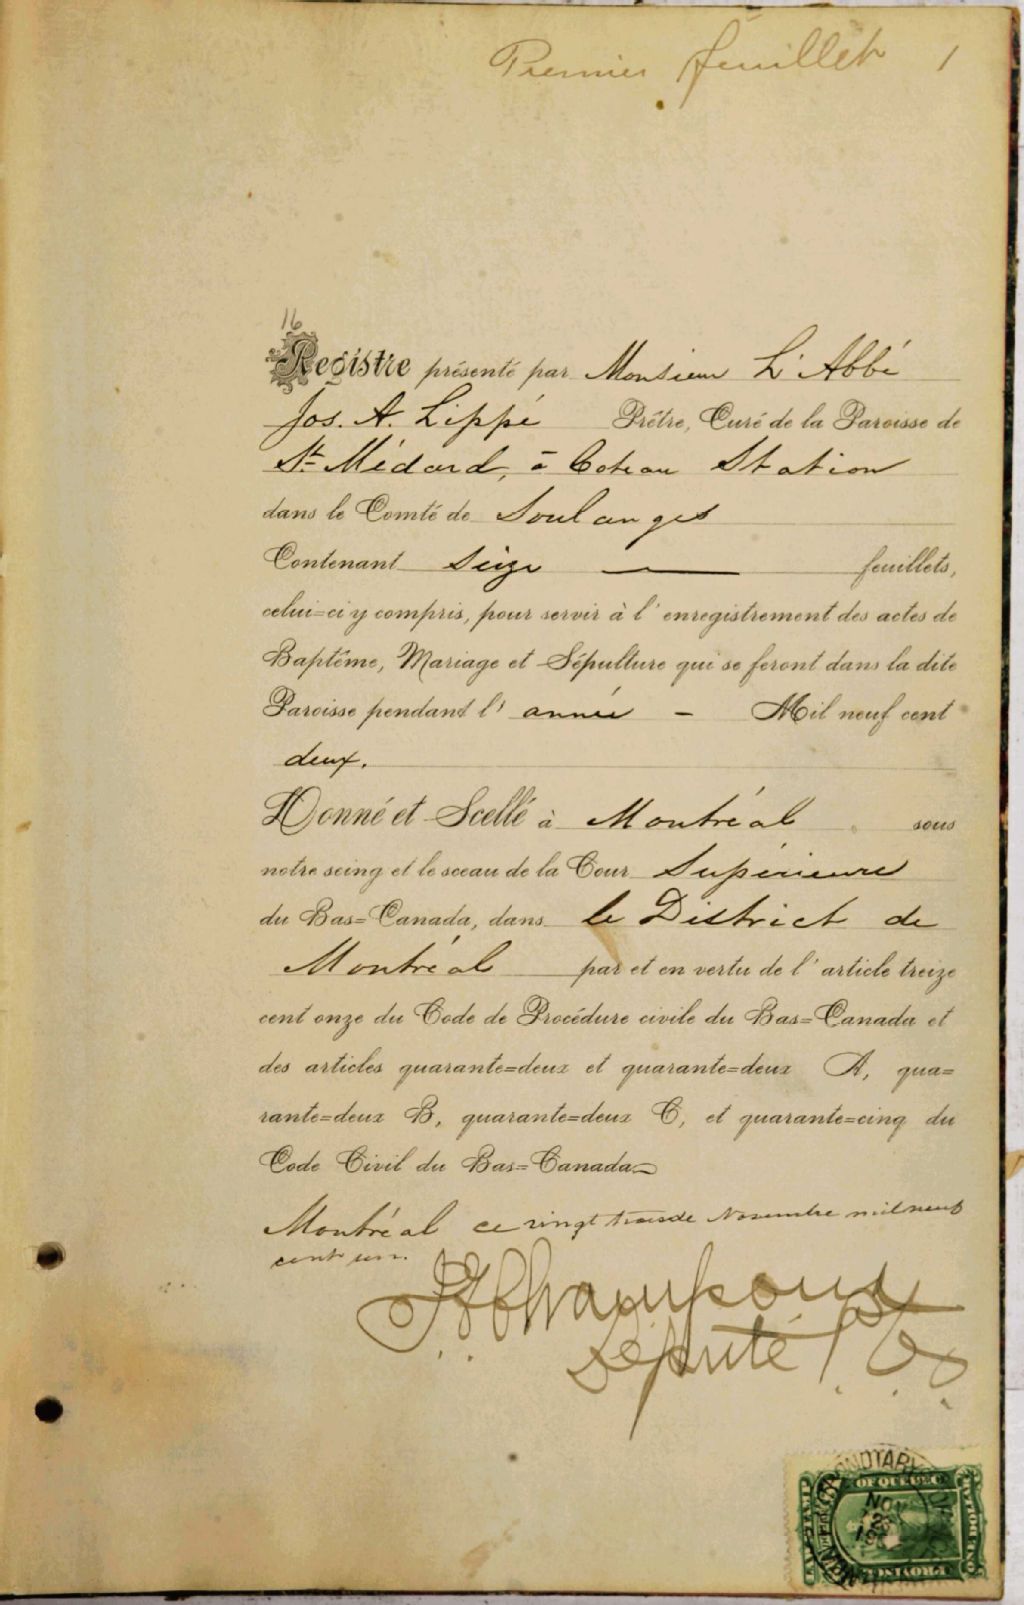 Premier feuillet 1
16
Registre présenté par Monsieur L'Abbé
Jos. A. Lippé Prêtre, Curé de la Paroisse de
St Médard, à Coteau Station
dans le Comté de Soulanges
Contenant seize feuillets,
celui=ci y compris, pour servir à l'enregistrement des actes de
Baptême, Mariage et Sépulture qui se feront dans la dite
Paroisse pendant l' année - Mil neuf cent
deux.
Donné et Scellé à Montréal sous
notre seing et le sceau de la Cour Supérieure
du Bas=Canada, dans le District de
Montréal par et en vertu de l'article treize
cent onze du Code de Procédure civile du Bas=Canada et
des articles quarante=deux et quarante=deux A, qua=
rante=deux B, quarante=deux C, et quarante=cinq du
Code Civil du Bas=Canada
Montréal ce vingt trois de Novembre mil neuf
cent un.
Député P
NOTARY
OF QUEBEC
NOV